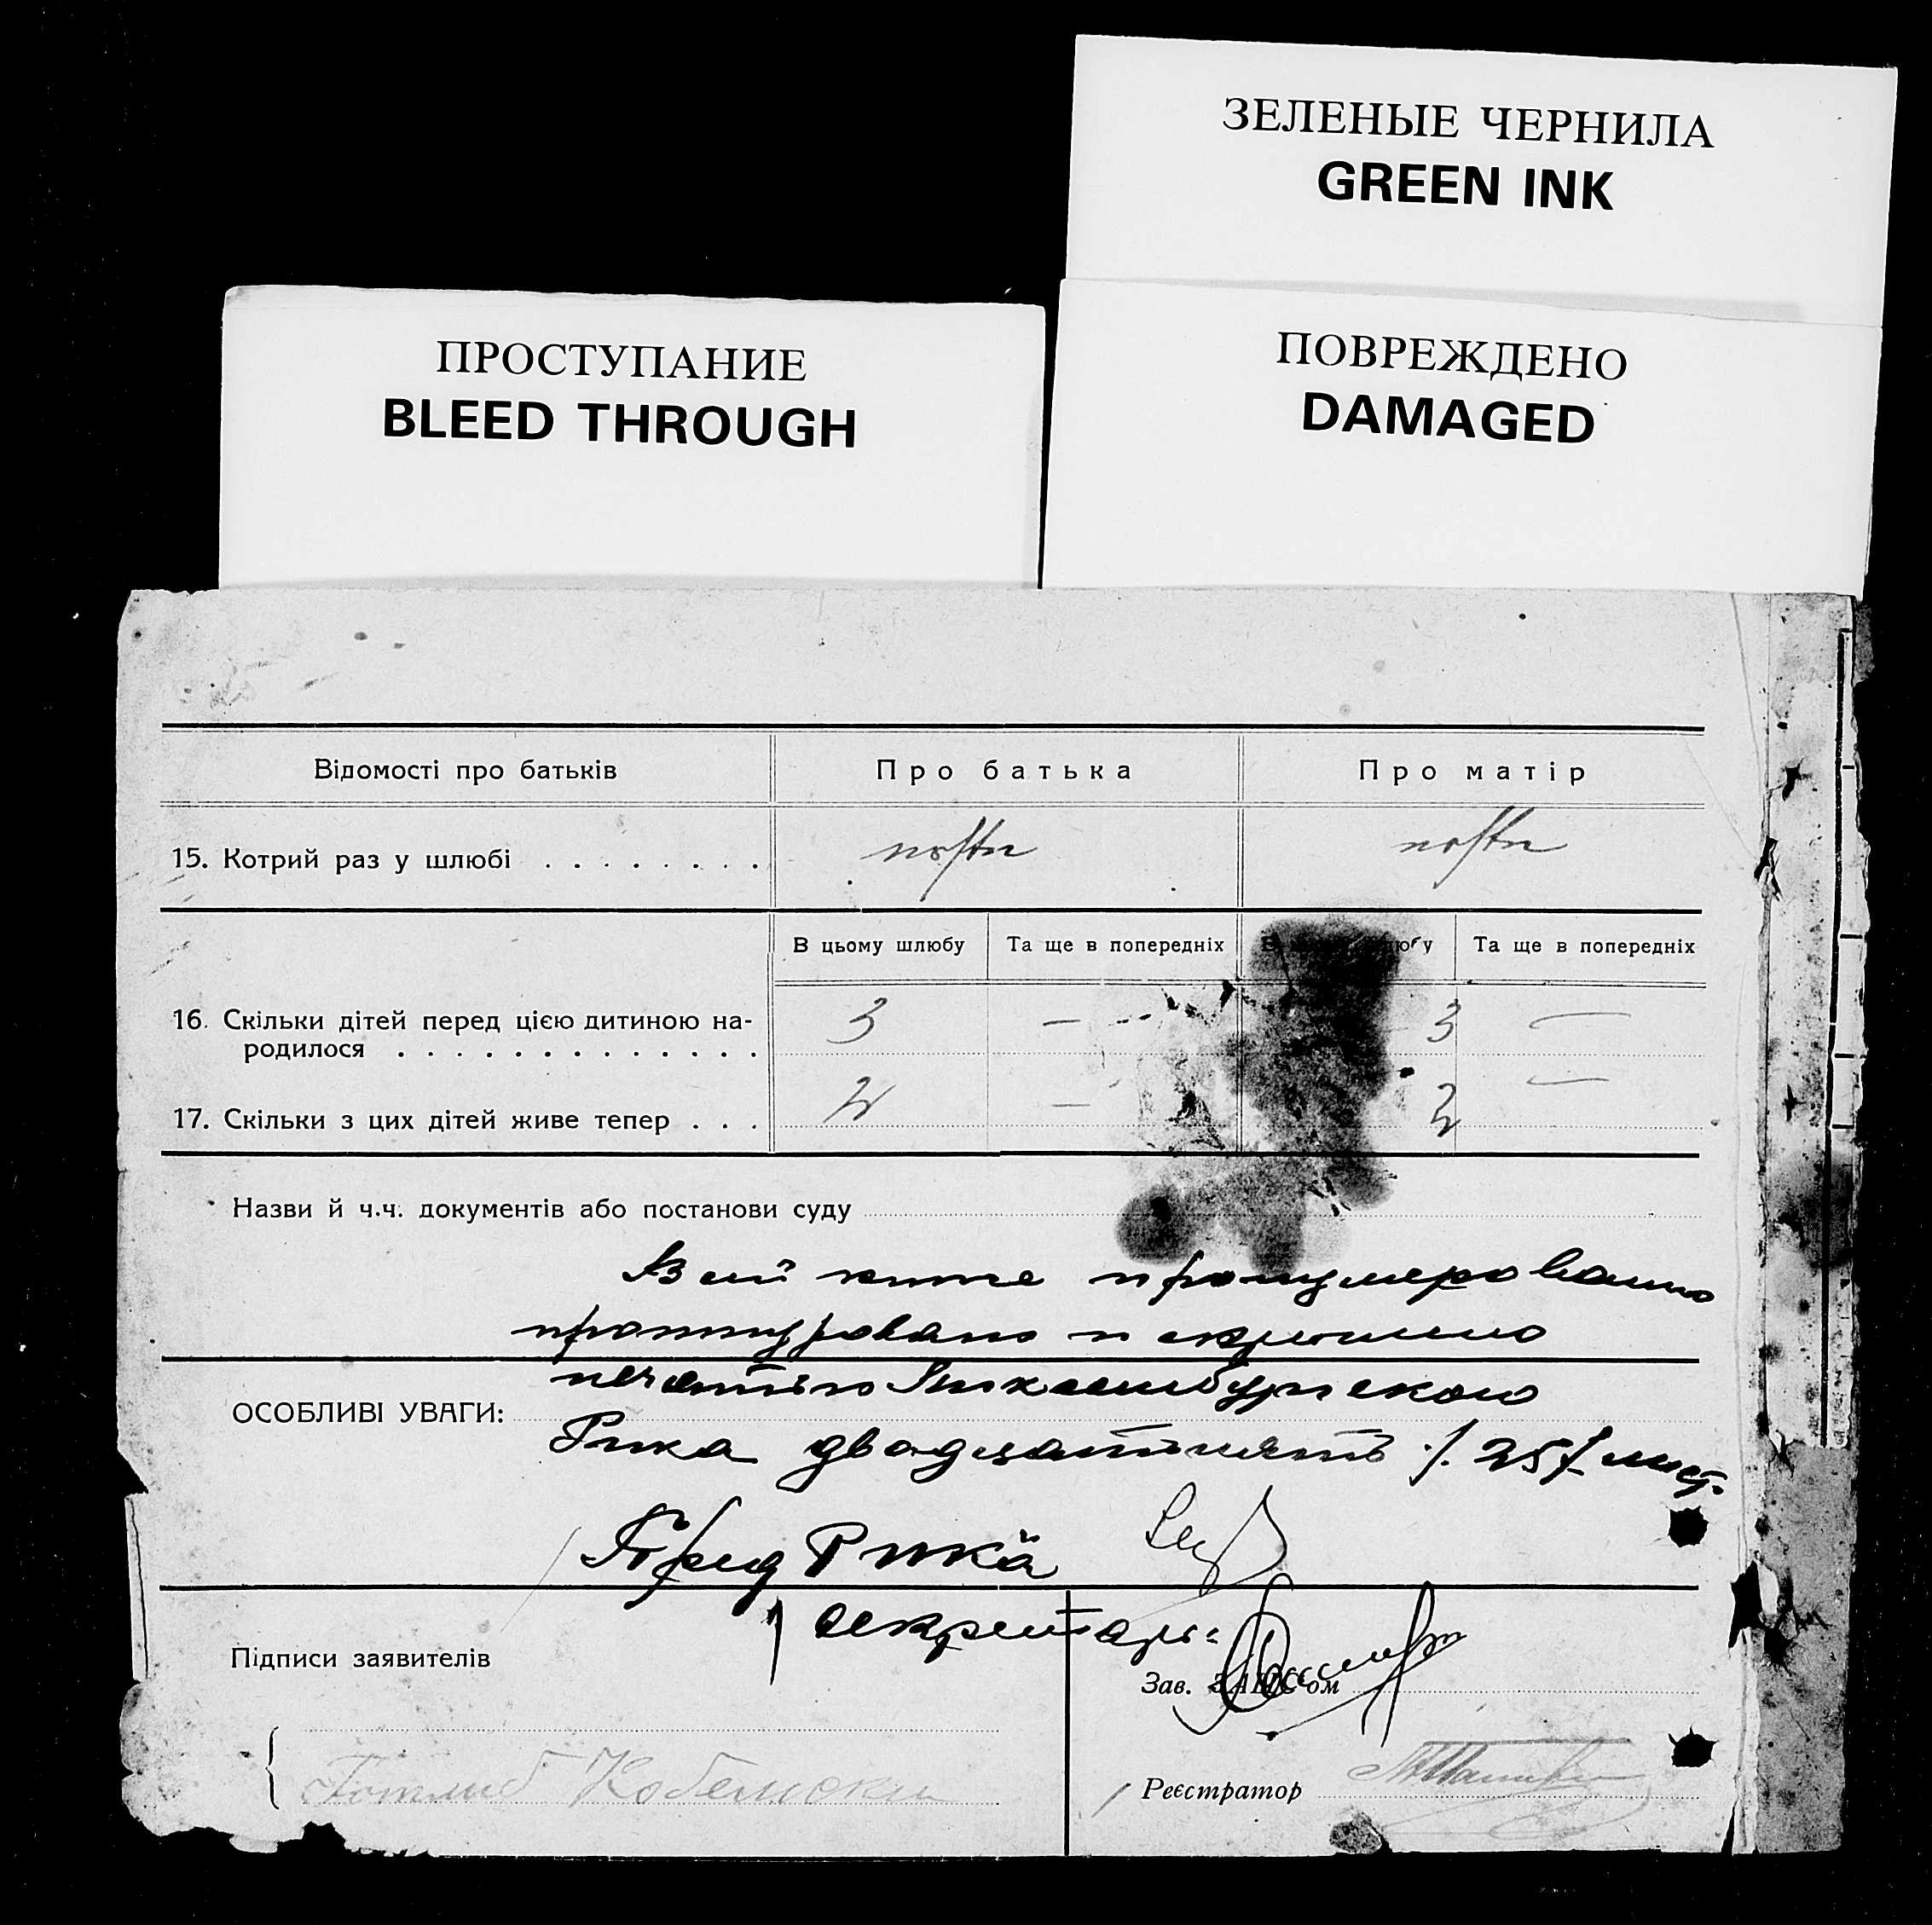 ЗЕЛЕНЫЕ ЧЕРНИЛА
GREEN INK
ПРОСТУПАНИЕ
BLEED THROUGH
ПОВРЕЖДЕНО
DAMAGED
Відомості про батьків Про батька Про матір
15. Котрий раз у шлюбі . . . . . . . .
В цьому шлюбу Та ще в попередніх В шлюбу Та ще в попередніх
16. Скільки дітей перед цією дитиною на- 3 — 3 —
родилося . . . . . . . . . . . . .
17. Скільки з цих дітей живе тепер . . . 2 — 2 —
Назви й ч.ч. документів або постанови суду
В сий книге пронумеровано
прошнуровано и скреплено
печатью Люксембургского
Рика двадцать пять /. 25 /. лист.
ОСОБЛИВІ УВАГИ:
Пред Рика
секретарь:
Підписи заявителів
Зав. ЗАГС'ом
Готлиб
Реєстратор